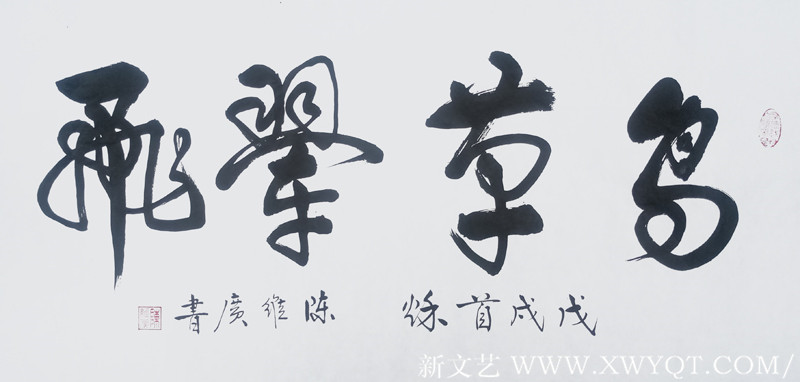 鸟革翚飛
戊戌首秋 陈维廣書
新文艺 WWW.XWYQT.COM/